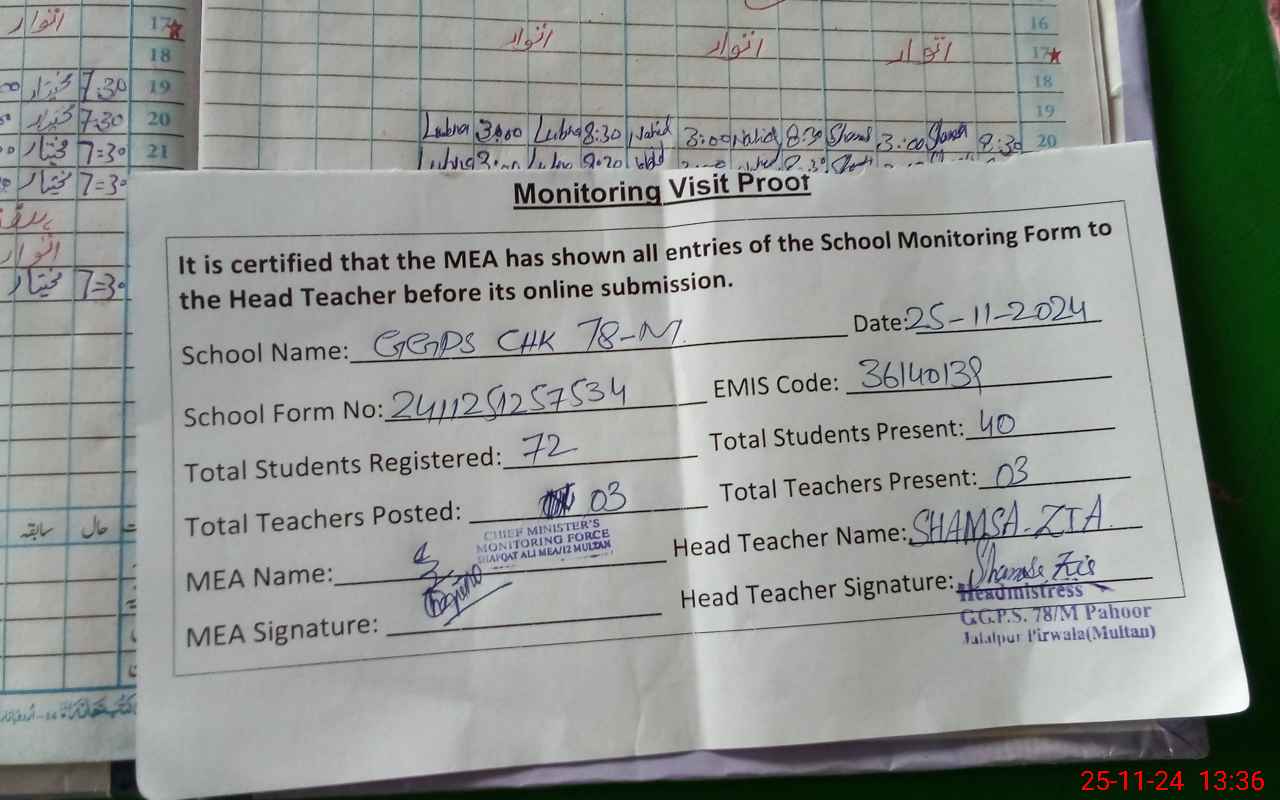 انوار
17
18
7:30 19
7:30 20
مختار 7=30 21
مختار 7=30
انوار
مختار 7=30
سابقہ حال
16
اتوار اتوار اتوار 17
18
19
Lubna 3:00 Lubna 8:30 Wahid 3:00 Wahid 8:30 Shamsa 3:00 Shamsa 8:30 20
Monitoring Visit Proof
It is certified that the MEA has shown all entries of the School Monitoring Form to
the Head Teacher before its online submission.
School Name: GGPS CHK 78-M. Date: 25-11-2024
School Form No: 2411251257534 EMIS Code: 36140139
Total Students Registered: 72 Total Students Present: 40
Total Teachers Posted: 03 Total Teachers Present: 03
CHIEF MINISTER'S
MONITORING FORCE
SHAFQAT ALI MEA/12 MULTAN
MEA Name: Head Teacher Name: SHAMSA-ZIA
MEA Signature: Head Teacher Signature: Shamsa Zia
Headmistress
G.G.P.S. 78/M Pahoor
Jalalpur Pirwala(Multan)
25-11-24 13:36